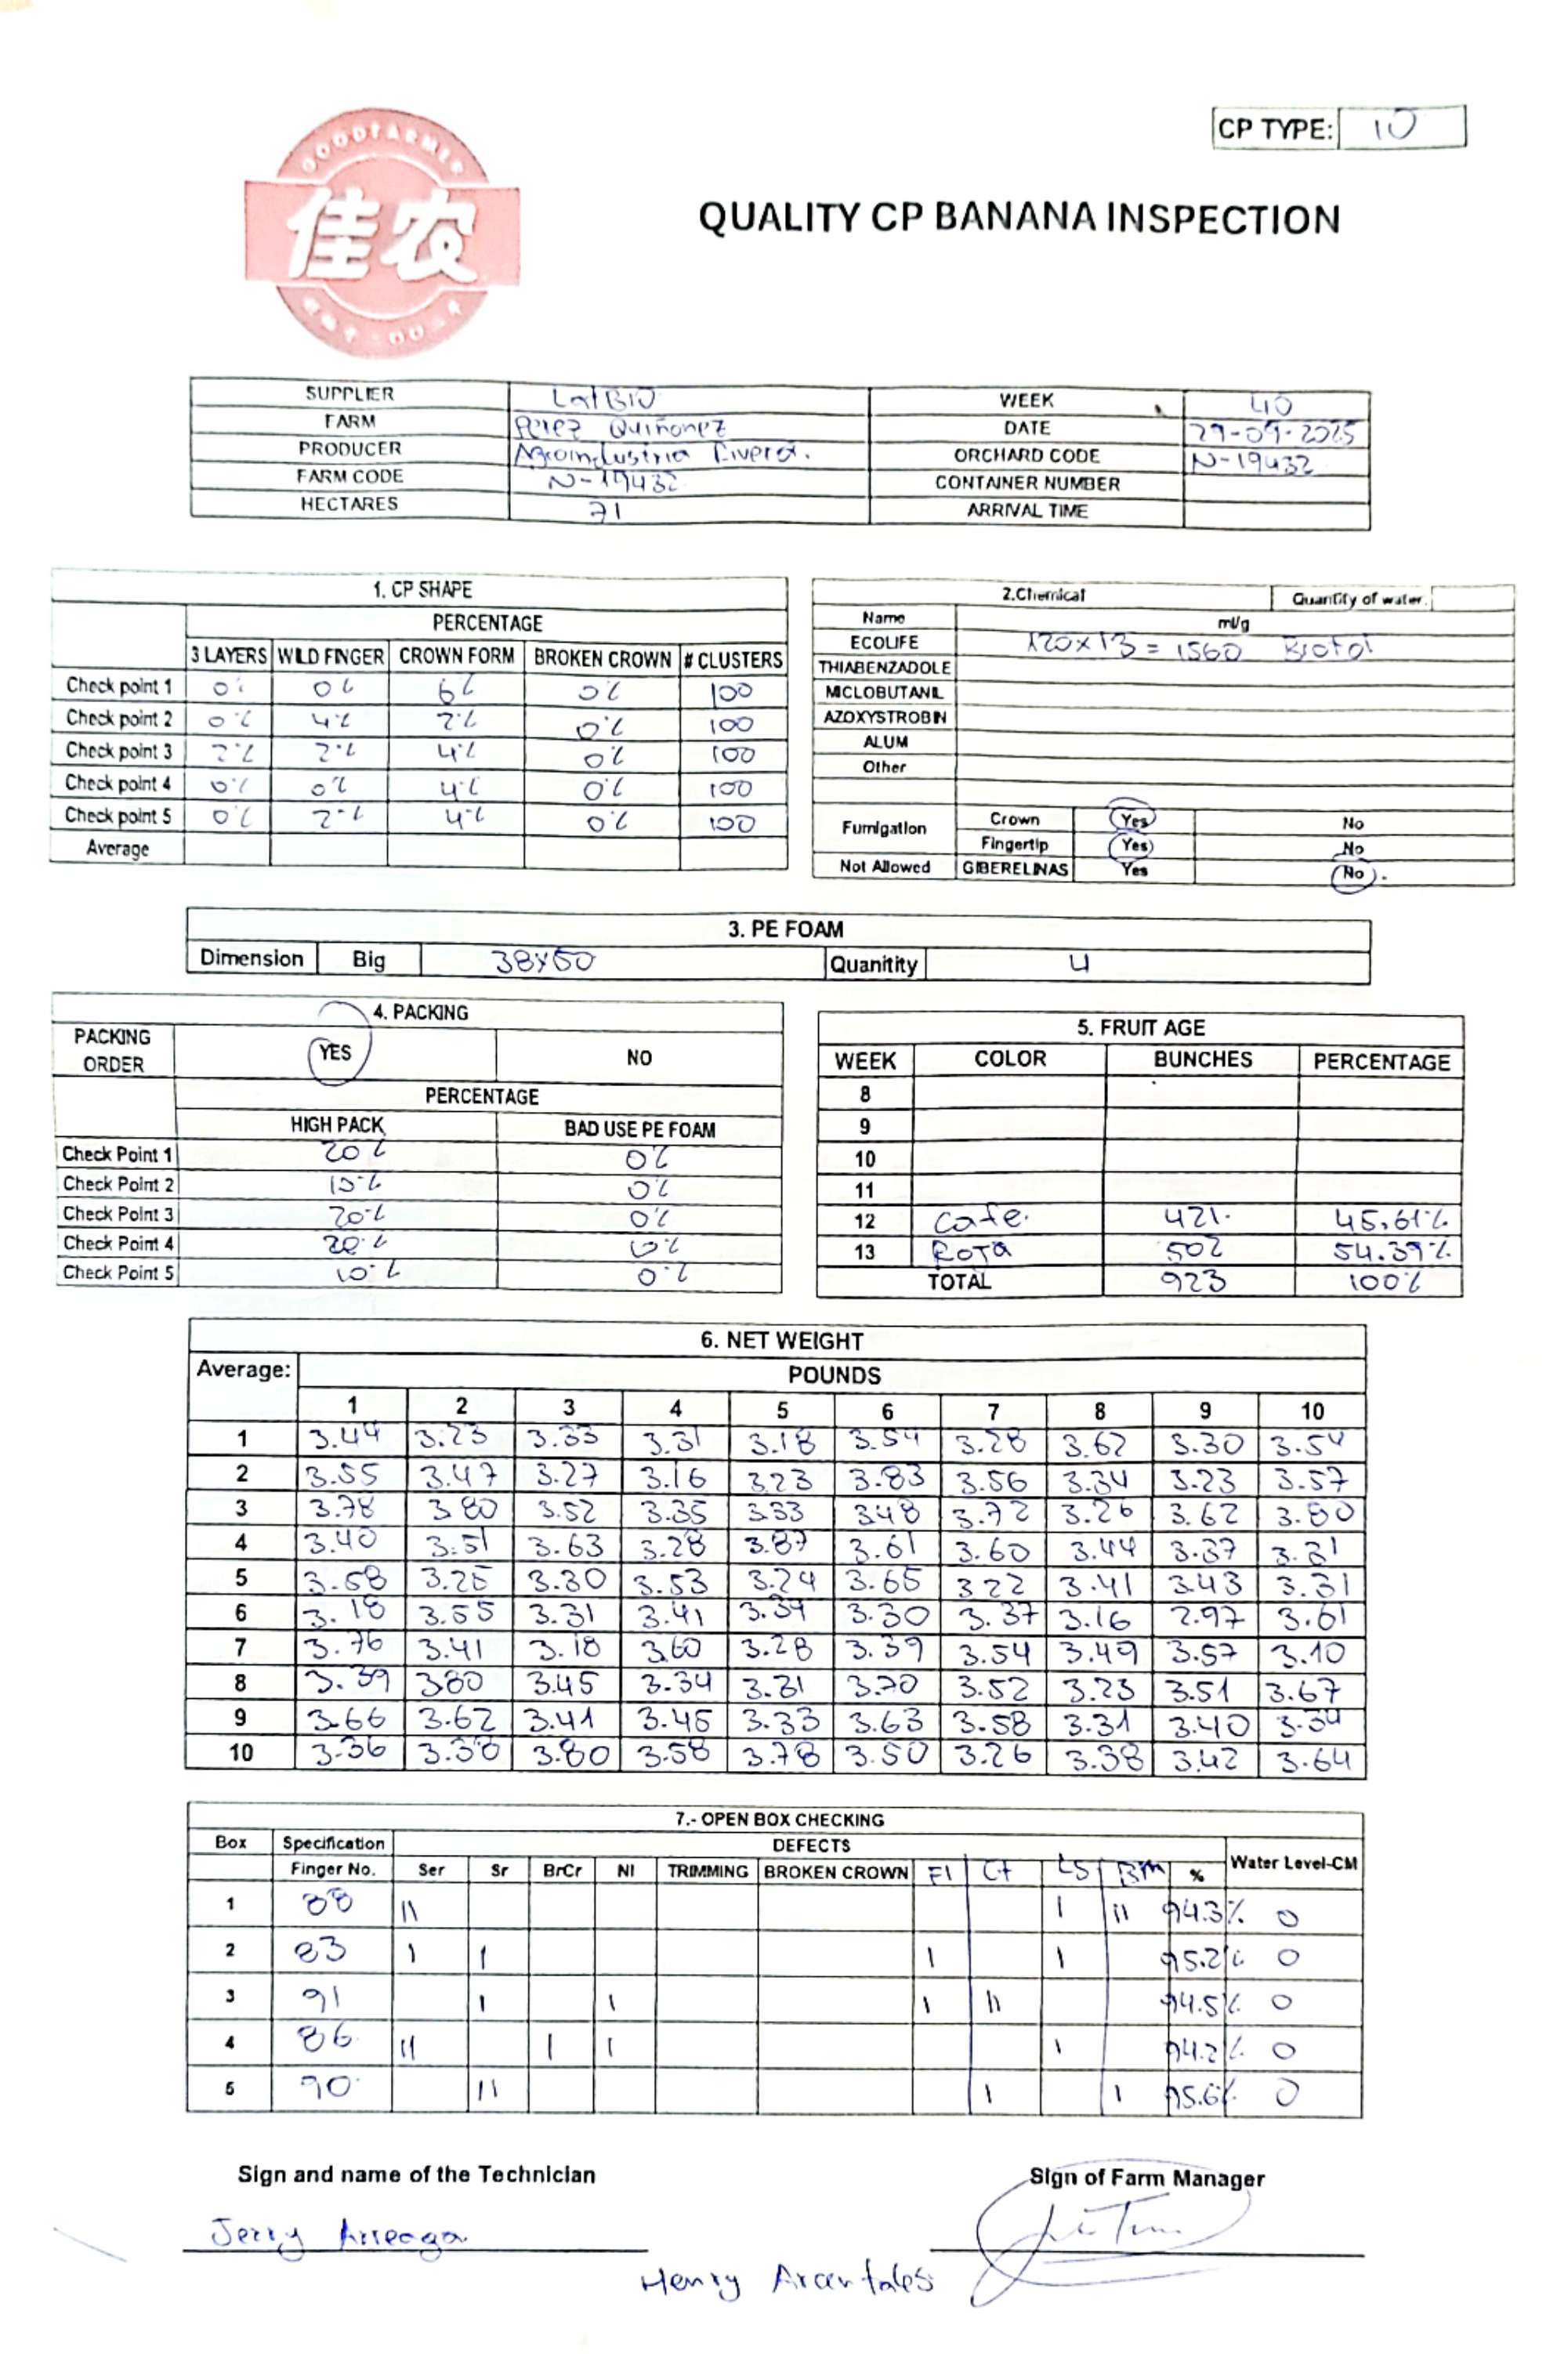 GOODFARMER
佳农
CP TYPE: 10
QUALITY CP BANANA INSPECTION
SUPPLIER LatBIO WEEK 40
FARM Perez Quiñonez DATE 29-09-2025
PRODUCER Agroindustria ORCHARD CODE N-19432
FARM CODE N-19432 CONTAINER NUMBER
HECTARES 71 ARRIVAL TIME
1. CP SHAPE
PERCENTAGE
3 LAYERS WILD FINGER CROWN FORM BROKEN CROWN # CLUSTERS
Check point 1 0% 0% 6% 0% 100
Check point 2 0% 4% 2% 0% 100
Check point 3 2% 2% 4% 0% 100
Check point 4 0% 0% 4% 0% 100
Check point 5 0% 2% 4% 0% 100
Average
2.Chemical Quantity of water.
Name ml/g
ECOLIFE 120x13 = 1560
THIABENZADOLE
MICLOBUTANIL
AZOXYSTROBIN
ALUM
Other
Fumigation Crown Yes No
Fingertip Yes No
Not Allowed GIBERELINAS Yes No
3. PE FOAM
Dimension Big 38x50 Quanitity 4
4. PACKING
PACKING ORDER YES NO
PERCENTAGE
HIGH PACK BAD USE PE FOAM
Check Point 1 20% 0%
Check Point 2 15% 0%
Check Point 3 20% 0%
Check Point 4 20% 10%
Check Point 5 10% 0%
5. FRUIT AGE
WEEK COLOR BUNCHES PERCENTAGE
8
9
10
11
12 Cafe. 421. 45.61%
13 Roja 502 54.39%
TOTAL 923 100%
6. NET WEIGHT
Average: POUNDS
1 2 3 4 5 6 7 8 9 10
1 3.44 3.23 3.33 3.31 3.18 3.54 3.28 3.62 3.30 3.54
2 3.55 3.47 3.27 3.16 3.23 3.83 3.56 3.34 3.23 3.57
3 3.78 3.80 3.52 3.35 3.33 3.48 3.72 3.26 3.62 3.80
4 3.40 3.51 3.63 3.28 3.87 3.61 3.60 3.44 3.37 3.31
5 3.58 3.25 3.30 3.53 3.24 3.65 3.22 3.41 3.43 3.31
6 3.18 3.55 3.31 3.41 3.34 3.30 3.37 3.16 2.97 3.61
7 3.76 3.41 3.18 3.60 3.28 3.39 3.54 3.49 3.57 3.10
8 3.39 3.80 3.45 3.34 3.31 3.70 3.52 3.23 3.51 3.67
9 3.66 3.62 3.41 3.45 3.33 3.63 3.58 3.31 3.40 3.34
10 3.36 3.38 3.80 3.58 3.78 3.50 3.26 3.38 3.42 3.64
7.- OPEN BOX CHECKING
Box Specification DEFECTS Water Level-CM
Finger No. Ser Sr BrCr NI TRIMMING BROKEN CROWN FI Ct LS BM %
1 88 II I II 94.3% 0
2 83 I I I I 95.2% 0
3 91 I I I II 94.5% 0
4 86 II I I I 94.2% 0
5 90 II I I 95.6% 0
Sign and name of the Technician Sign of Farm Manager
Jerry Arreaga
Henry Arcentales